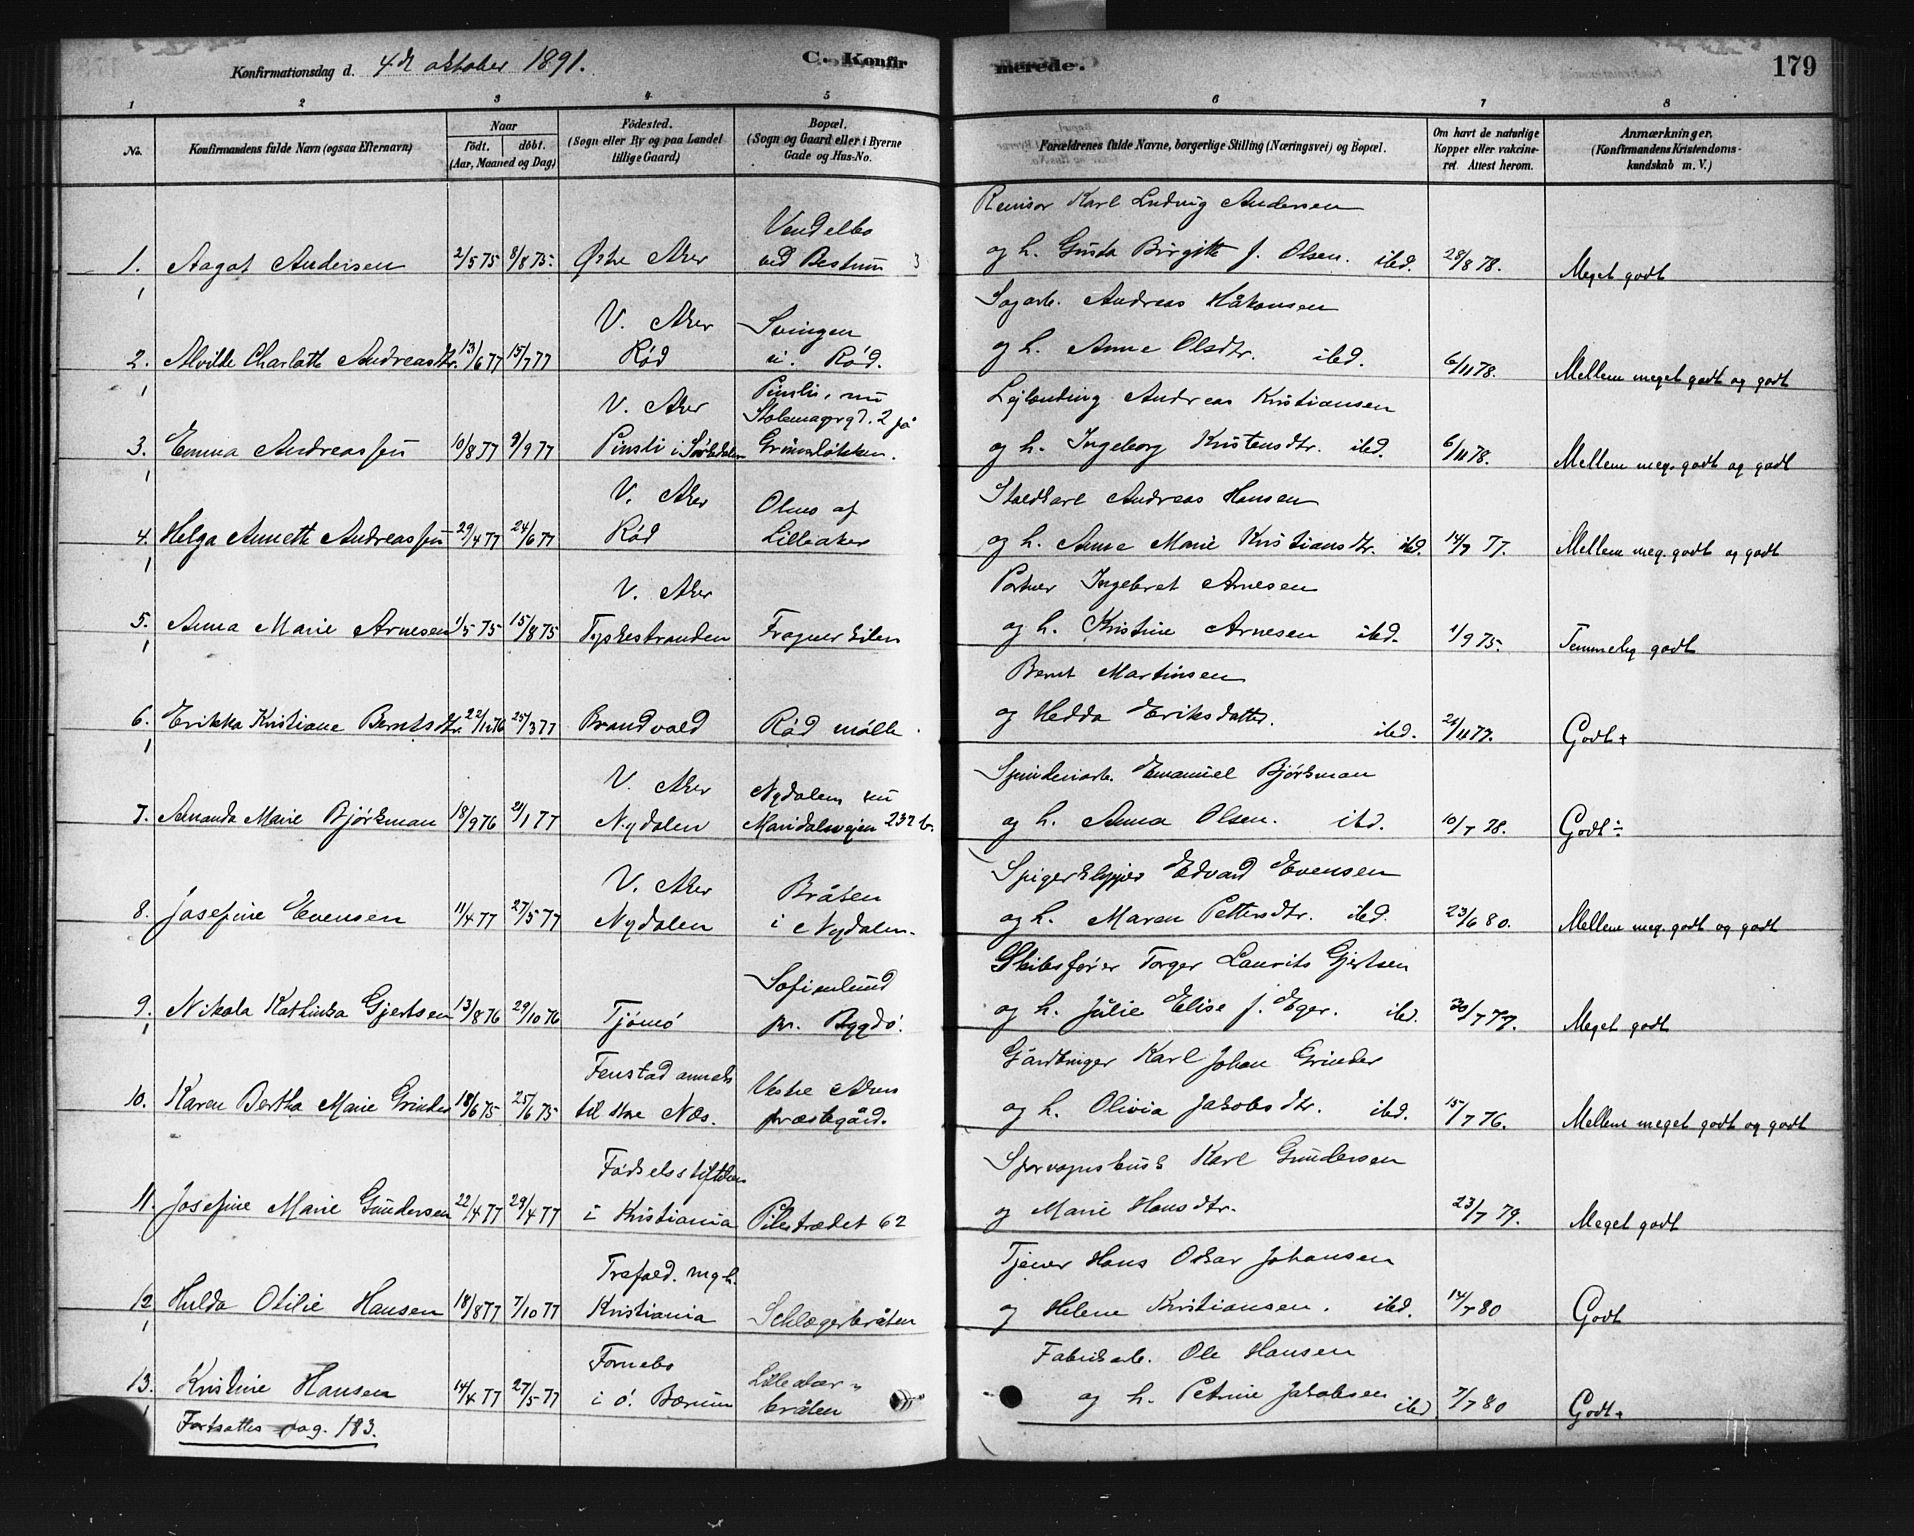 Konfirmationsdag d. 4de oktober 1891.
C. Konfirmerede.
179
1 2 3 4 5 6 7 8
No.
Konfirmandens fulde Navn (ogsaa Efternavn)
Naar
födt. döbt.
(Aar, Maaned og Dag)
Födested.
(Sogn eller By og paa Landet
tillige Gaard)
Bopæl.
(Sogn og Gaard eller i Byerne
Gade og Hus-No.
Forældrenes fulde Navne, borgerlige Stilling (Næringsvei) og Bopæl.
Om havt de naturlige
Kopper eller vakcine-
ret. Attest herom.
Anmærkninger.
(Konfirmandens Kristendoms-
kundskab m. V.)
Vendelbo
Revisor Karl Ludvig Andersen
1. Aagot Andersen 2/5 75 8/8 75. Østre Aker ved Bestum og h. Gusta Birgitte f. Olsen. ibd. 28/8 78. Meget godt
V. Aker Svingen Sagarb. Andreas Håkonsen
2. Alvilde Charlotte Andreasdtr. 13/6 77 15/7 77 Rød u. Rød. og h. Anne Olsdtr. ibd. 6/11 78. Mellem meget godt og godt
V. Aker Pinsli, nu Lejlending Andreas Kristiansen
Stolemagrgd. 2 på
3. Emma Andreassen 10/8 77 9/9 77 Pinsli i Sørkedalen Grünerløkken. og h. Ingeborg Kristensdtr. ibd. 6/11 78. Mellem meg. godt og godt
V. Aker Staldkarl Andreas Hansen
4. Helga Annette Andreassen 29/4 77 24/6 77 Rød Lilleaker og h. Anne Marie Kristiansdtr. ibd. 14/9 77. Mellem meg. godt og godt
V. Aker Portner Ingebret Arnesen
5. Anna Marie Arnesen 1/5 75 15/8 75 Tyskestranden Frognerkilen og h. Kristine Arnesen ibd. 1/9 75. Temmelig godt
Bernt Martinsen
6. Erikka Kristiane Berntsdtr. 22/12 76 25/3 77 Brandvold Rød mølle. og Hedda Eriksdatter. ibd. Godt +
V. Aker Nydalen nu Spinderiarb. Emanuel Bjørkman
7. Amanda Marie Bjørkman 18/9 76 21/1 77 Nydalen Maridalsvejen 232 b. og h. Anna Olsen. ibd. 10/7 78. Godt ÷
V. Aker Bråten Spigerklipper Edvard Evensen
8. Josefine Evensen 11/4 77 27/5 77 Nydalen i Nydalen. og h. Maren Pettersdtr. ibd. 23/6 80. Mellem meg. godt og godt
Sofienlund Skibsfører Torger Laurits Gjertsen
9. Nikola Kathinka Gjertsen 13/8 76 29/10 76 Tjømø pr. Bygdø. og h. Julie Elise f. Eger. ibd. 30/7 77. Meget godt
Fenstad anneks Vestre Akers Gårdbruger Karl Johan Grinder
10. Karen Bertha Marie Grinder 18/6 75 25/6 75 til store Næs. præstegård. og h. Olivia Jakobsdtr. ibd. 15/7 76. Mellem meget godt og godt
Fødselsstiftelsen Sporvognskusk Karl Gundersen
11. Josefine Marie Gundersen 22/4 77 29/4 77 i Kristiania Pilestrædet 62 og Marie Hansdtr. 23/7 79. Meget godt
Trefold. mgh. Tjener Hans Oskar Johansen
12 Hulda Otilie Hansen 18/8 77 7/10 77 Kristiania Schlægerbråten og Helene Kristiansen. ibd. 14/7 80 Godt
Fornebo Lilleaker- Fabrikarb. Ole Hansen
13. Kristine Hansen 14/4 77 27/5 77 i ø. Bærum bråten og h. Petrine Jakobsen ibd 7/7 80 Godt +
Fortsættes pag. 183.